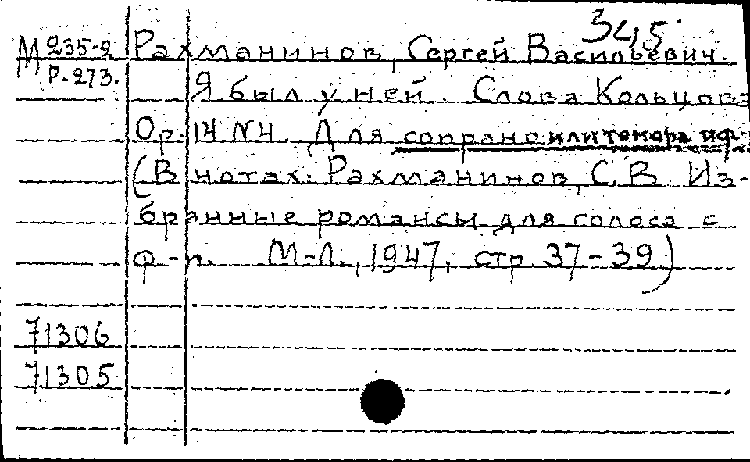 345
М 235-2 Рахманинов, Сергей Васильевич.
Р-273. Я был у ней. Слова Кольцова
Ор. 14 №4. Для сопрано или тенора и ф-
(В нотах: Рахманинов, С. В. Из-
бранные романсы для голоса с
ф-п. М-Л., 1947, стр. 37-39)
71306
71305